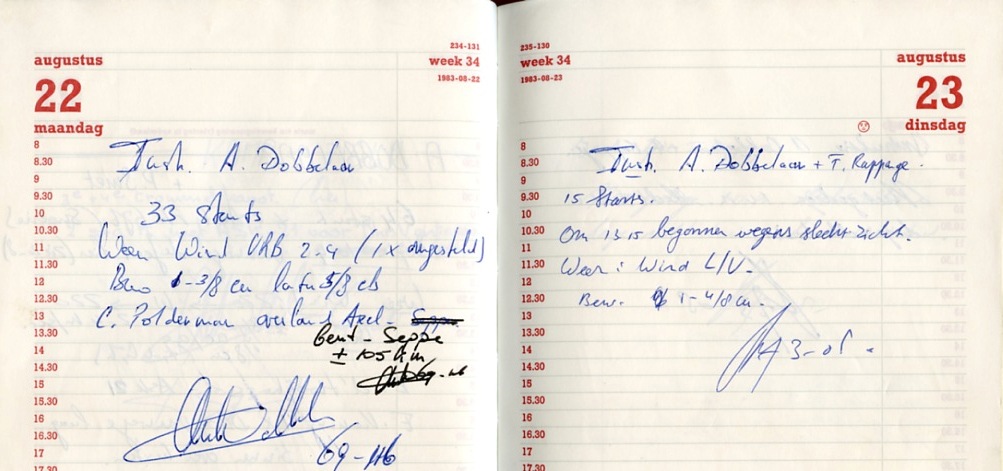 234-131
augustus
week 34
22
1983-08-22
maandag
8
Instr. A. Dobbelaar
8.30
9
33 Starts
9.30
10
10.30
Weer Wind VRB 2-4 (1x omgesteld)
11
11.30
1-3/8 cu later 3/8 cb
12
12.30
C. Polderman overland Axel - Seppe
13
Gent - Seppe
13.30
± 105 km
14
14.30
15
15.30
16
16.30
69-46
17
17.30
235-130
week 34
augustus
1983-08-23
23
dinsdag
8
Instr. A. Dobbelaar + T. Rappage.
8.30
9
15 Starts.
9.30
10
Om 13 15 begonnen wegens slecht zicht.
10.30
11
Weer: Wind L/V.
11.30
12
Bew. 1-4/8 cu.
12.30
13
13.30
14
14.30
15
15.30
16
16.30
17
17.30